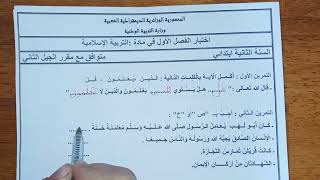 الجمهورية الجزائرية الديمقراطية الشعبية
وزارة التربية الوطنية
اختبار الفصل الأول في مادة :التربية الإسلامية
السنة الثانية ابتدائي
متوافق مع مقرر الجيل الثاني
التمرين الأول : أكمل الآية بالكلمات التالية : الذين يعلمون قل
قال الله تعالى : " هل يستوي يعلمون والذين لا
التمرين الثاني : أجب بـ "ص" أو "خ" :
كان أبو لهب يعامل الرسول صلى الله عليه وسلم معاملة حسنة
الإنسان الصادق يحبه الله ورسوله والناس جميعا
كانت قريش تمارس التجارة
الشهادتان من أركان الإيمان